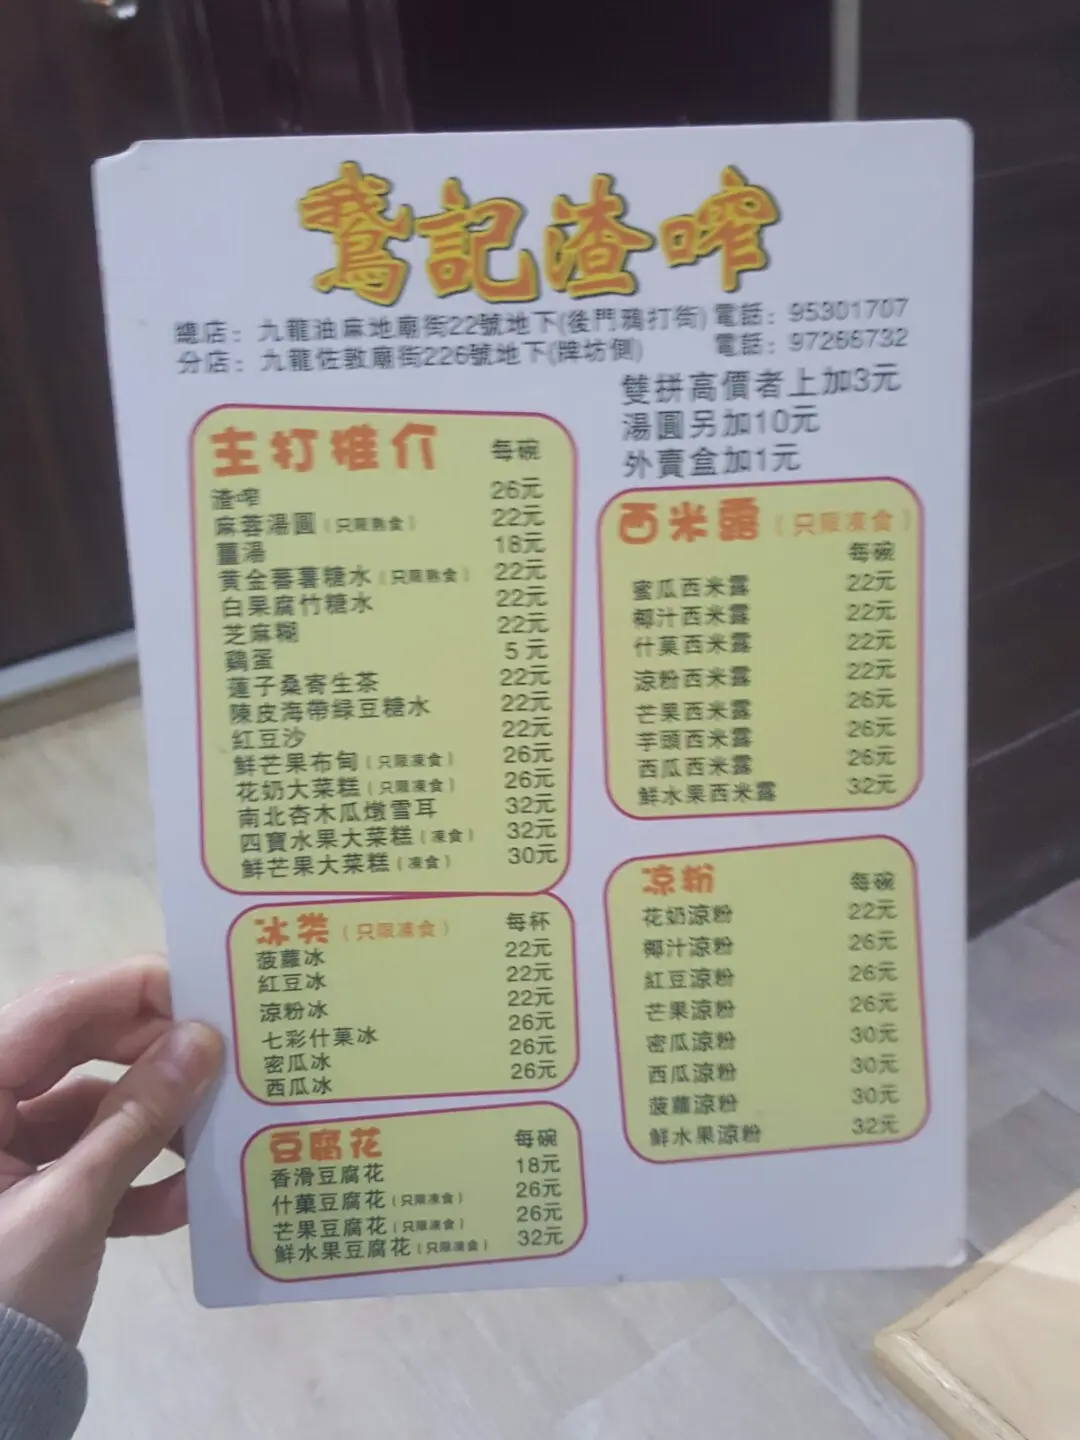 鵞記渣咋
總店：九龍油麻地廟街22號地下(後門鴉打街) 電話：95301707
分店：九龍佐敦廟街226號地下(牌坊側) 電話：97266732
雙拼高價者上加3元
湯圓另加10元
外賣盒加1元
主打推介 每碗
渣咋 26元
麻蓉湯圓(只限熱食) 22元
薑湯 18元
黄金蕃薯糖水(只限熱食) 22元
白果腐竹糖水 22元
芝麻糊 22元
鷄蛋 5元
蓮子桑寄生茶 22元
陳皮海帶緑豆糖水 22元
紅豆沙 22元
鮮芒果布甸(只限凍食) 26元
花奶大菜糕(只限凍食) 26元
南北杏木瓜燉雪耳 32元
四寶水果大菜糕(凍食) 32元
鮮芒果大菜糕(凍食) 30元
西米露(只限凍食)
每碗
蜜瓜西米露 22元
椰汁西米露 22元
什菓西米露 22元
涼粉西米露 22元
芒果西米露 26元
芋頭西米露 26元
西瓜西米露 26元
鮮水果西米露 32元
冰类(只限凍食) 每杯
菠蘿冰 22元
紅豆冰 22元
涼粉冰 22元
七彩什菓冰 26元
密瓜冰 26元
西瓜冰 26元
凉粉 每碗
花奶涼粉 22元
椰汁涼粉 26元
紅豆涼粉 26元
芒果涼粉 26元
密瓜涼粉 30元
西瓜涼粉 30元
菠蘿涼粉 30元
鮮水果涼粉 32元
豆腐花 每碗
香滑豆腐花 18元
什菓豆腐花(只限凍食) 26元
芒果豆腐花(只限凍食) 26元
鮮水果豆腐花(只限凍食) 32元